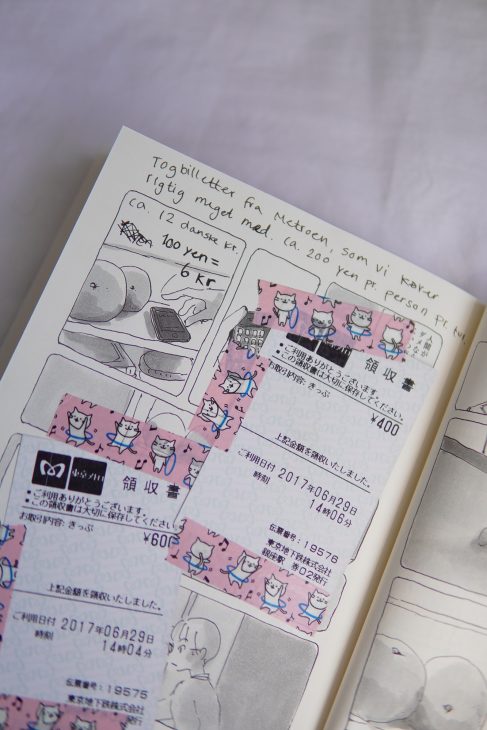 Togbilletter fra Metroen, som vi kører
rigtig meget med. ca. 200 yen pr. person pr. tur.
ca. 12 danske kr.
100 yen =
6 kr
領収書
●ご利用ありがとうございます。
●この領収書は大切に保存してください。
お取引内容: きっぷ
¥400
上記金額を領収いたしました。
ご利用日付 2017年06月29日
時刻 14時06分
伝票番号: 19576
東京地下鉄株式会社
銀座駅 券02発行
東京メトロ
領収書
●ご利用ありがとうございます。
●この領収書は大切に保存してください
お取引内容: きっぷ
¥600
上記金額を領収いたしました。
ご利用日付 2017年06月29日
時刻 14時04分
伝票番号: 19575
東京地下鉄株式会社
発行